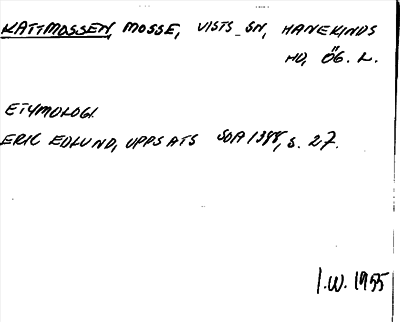 KATTMOSSEN, MOSSE, VISTS SN, HANEKINDS
HD, ÖG. L.
ETYMOLOGI.
ERIC EDLUND, UPPSATS SOA 1388, S. 27.
I.W. 1955